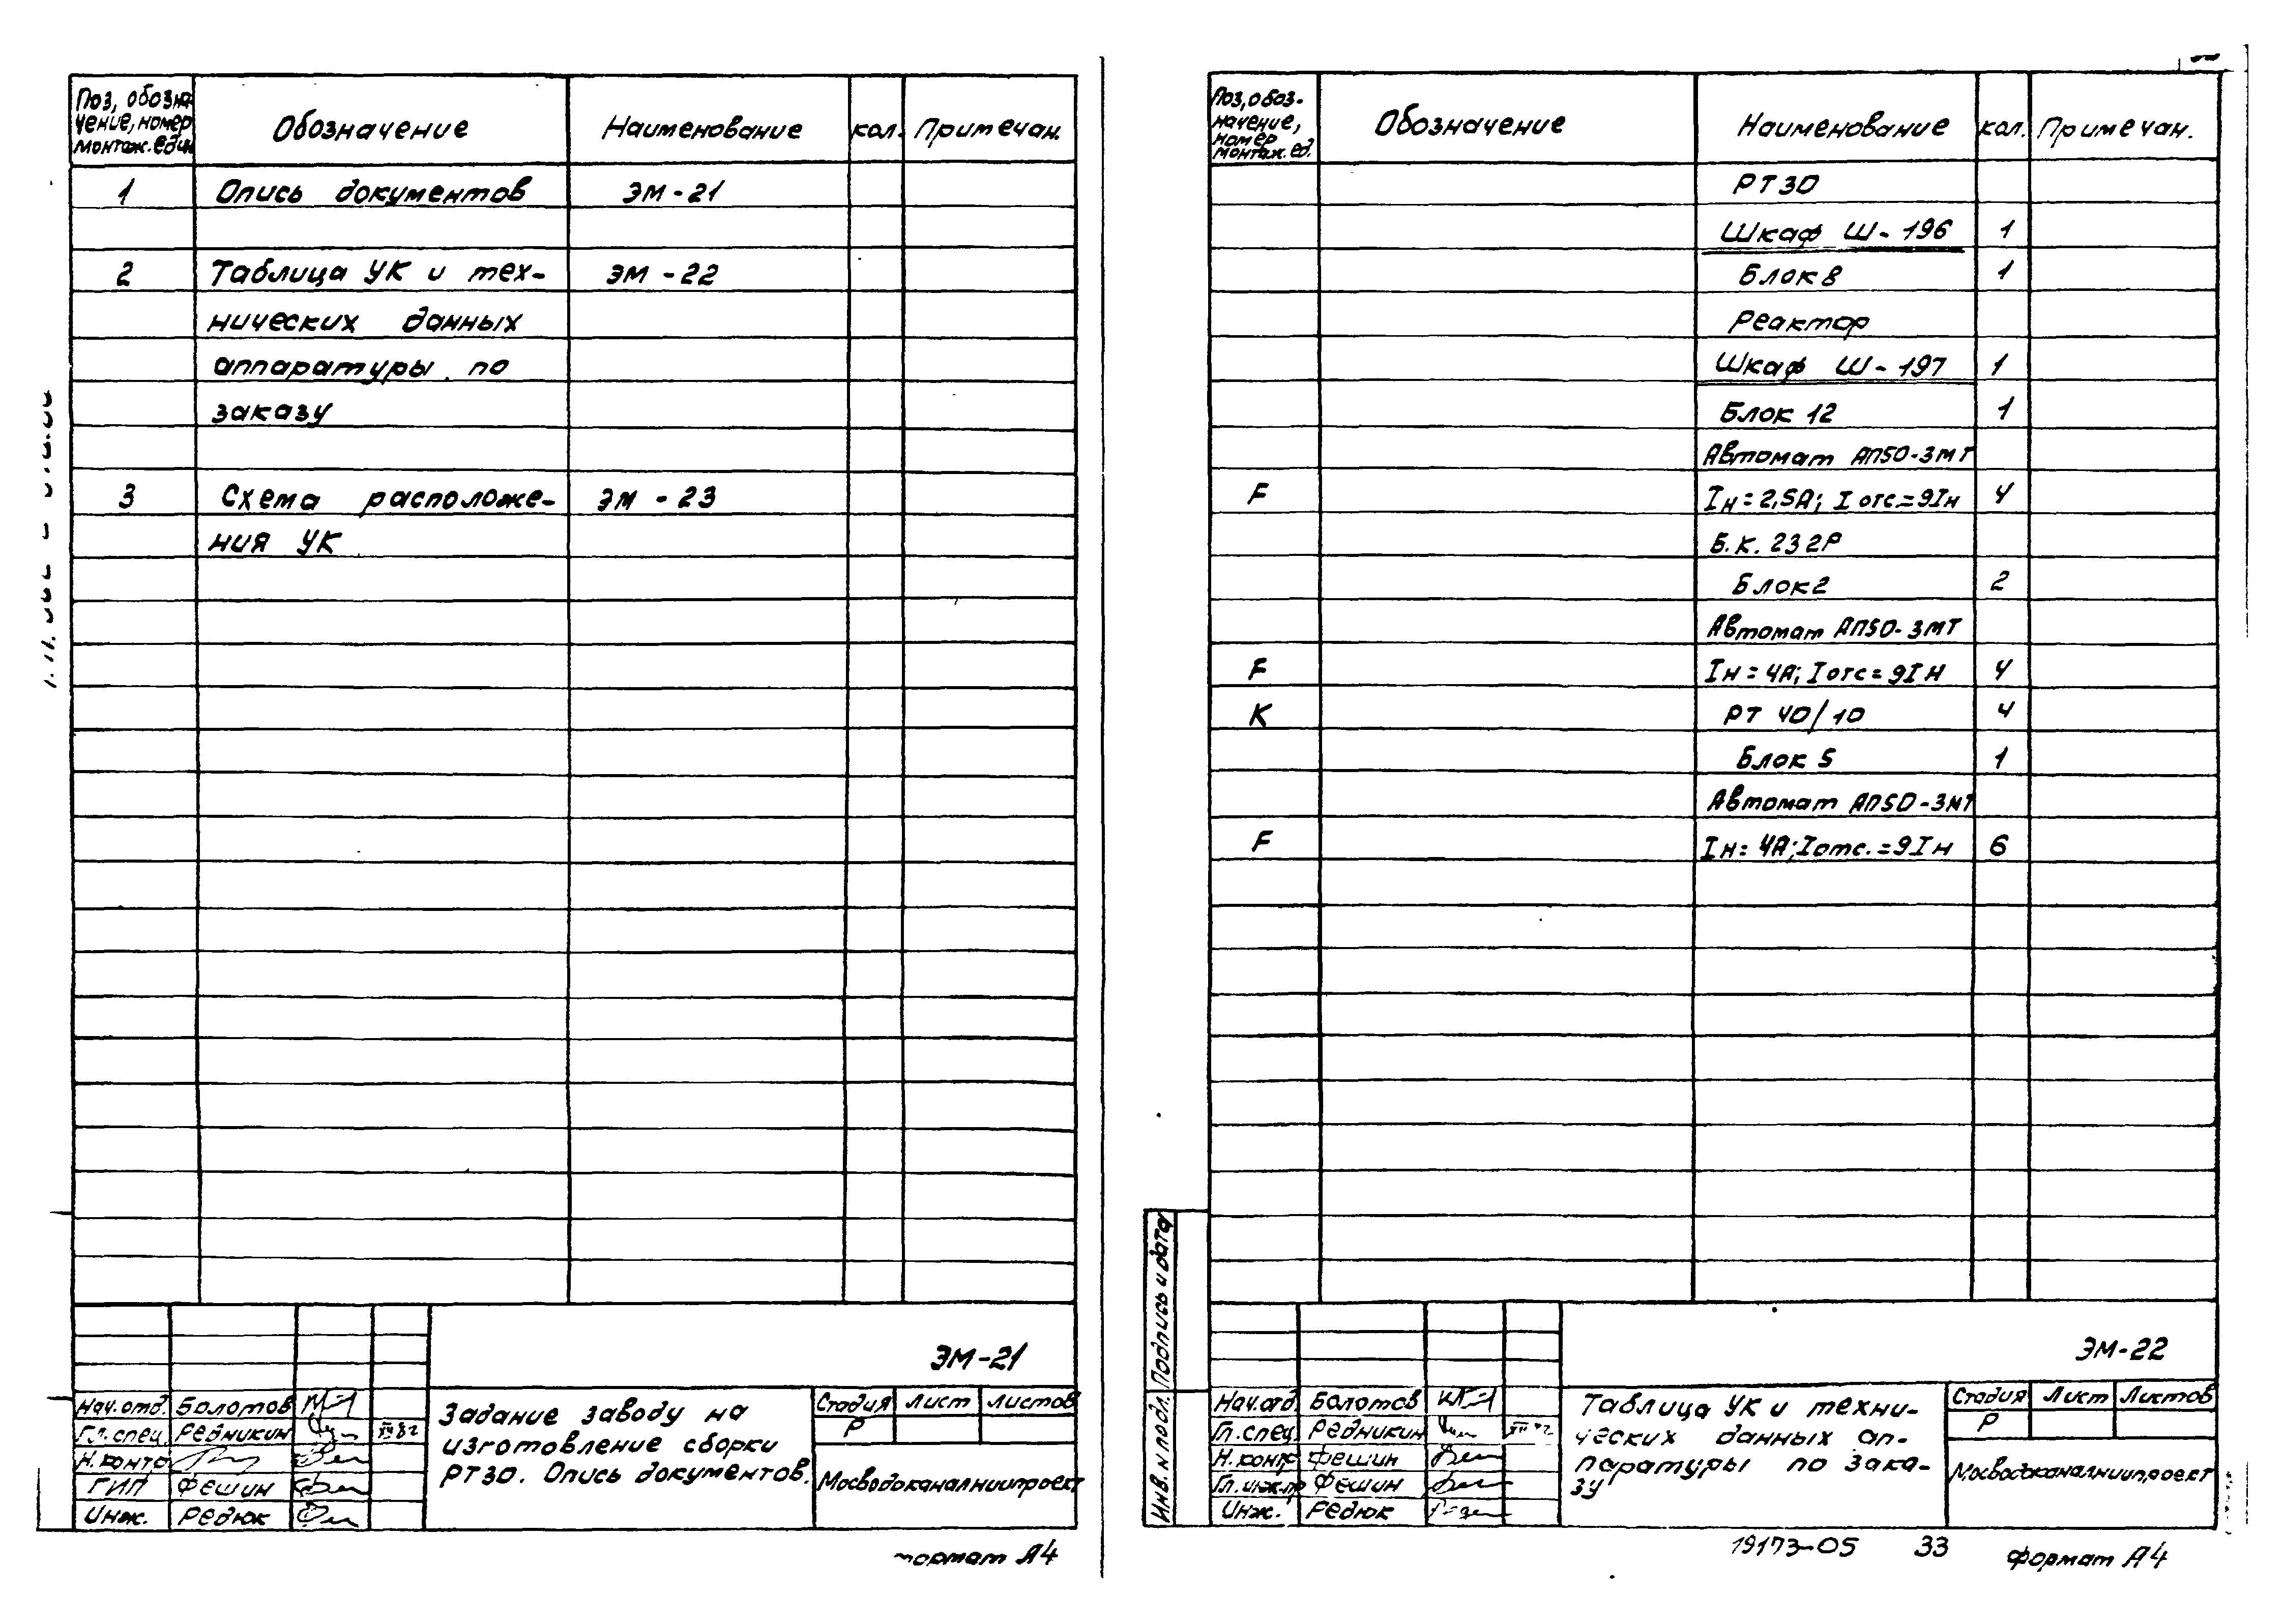 Поз, обозна-
чение, номер
монтаж. един.
Обозначение
Наименование
кол.
Примечан.
1
Опись документов
ЭМ-21
2
Таблица УК и тех-
ЭМ-22
нических данных
аппаратуры по
заказу
3
Схема расположе-
ЭМ-23
ния УК
ЭМ-21
Нач. отд. Болотов
Гл. спец. Редникин
Н. контр
ГИП Фешин
Инж. Редюк
Задание заводу на
изготовление сборки
РТ30. Опись документов.
Стадия Лист Листов
Р
Мосводоканалниипроект
формат А4
Поз, обоз-
начение,
номер
монтаж. ед.
Обозначение
Наименование
кол.
Примечан.
РТ30
Шкаф Ш-196 1
Блок 8 1
Реактор
Шкаф Ш-197 1
Блок 12 1
Автомат АП50-3МТ
F Iн=2,5А; I отс=9Iн 4
Б.К. 232Р
Блок 2 2
Автомат АП50-3МТ
F Iн=4А; I отс=9Iн 4
К РТ 40/10 4
Блок 5 1
Автомат АП50-3МТ
F Iн=4А; I отс.=9Iн 6
Инв. н подл. Подпись и дата
ЭМ-22
Нач. отд. Болотов
Гл. спец. Редникин
Н. контр Фешин
Гл. инж. пр Фешин
Инж. Редюк
Таблица УК и техни-
ческих данных ап-
паратуры по зака-
зу
Стадия Лист Листов
Р
Мосводоканалниипроект
19173-05 33
формат А4